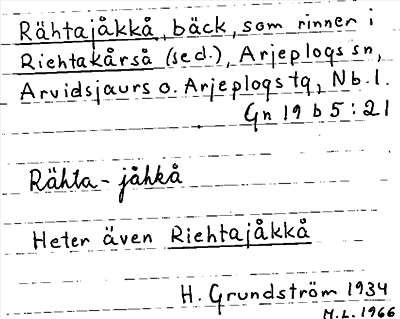 Rähtajåkkå, bäck, som rinner i
Riehtakårså (se d.), Arjeplogs sn,
Arvidsjaurs o. Arjeplogs tg, Nb. l.
Gn 19 b 5:21
Rähta-jåhkå
Heter även Riehtajåkkå
H. Grundström 1934
M.L. 1966